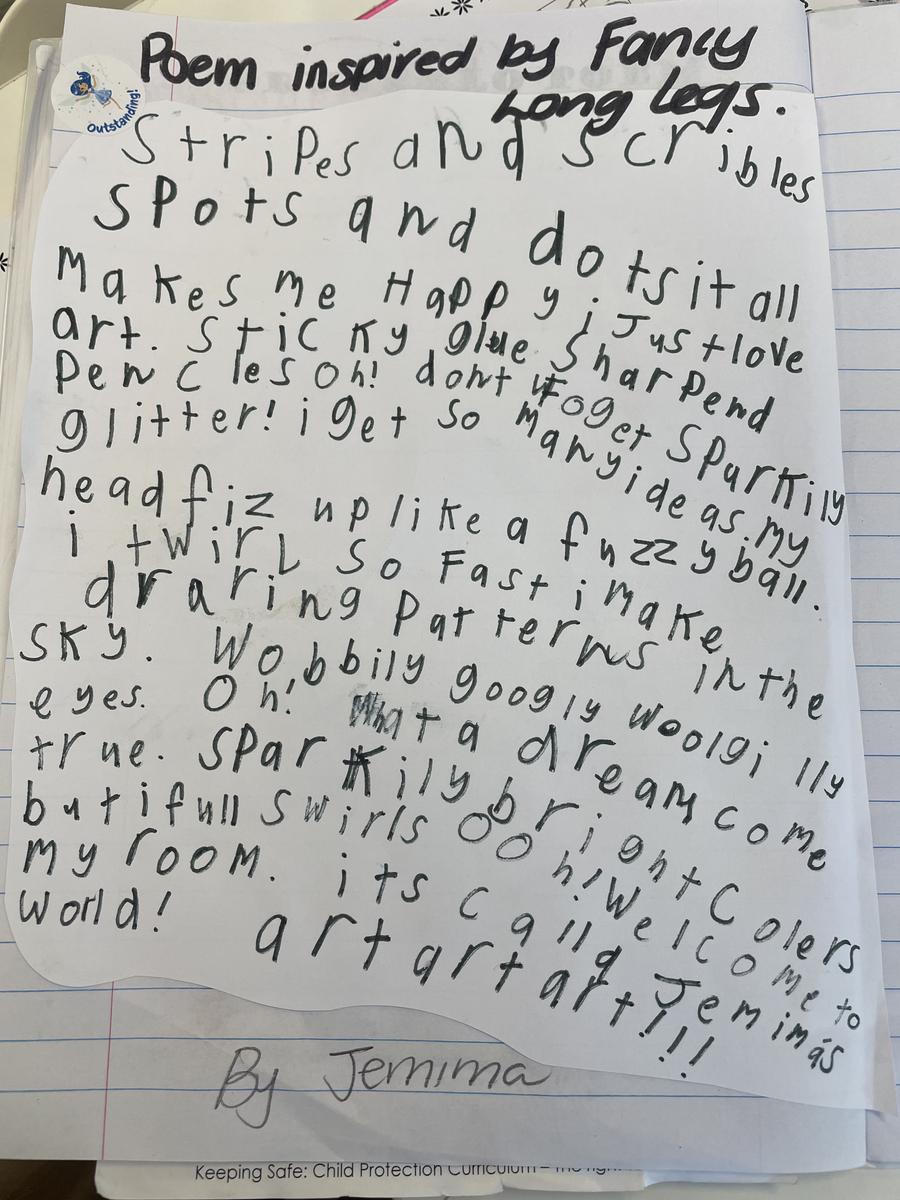 Poem inspired by Fancy
Long Legs.
Outstanding!
Stripes and scribles
spots and dots it all
makes me Happy i Just love
art. Sticky glue Sharpend
Pencles Oh! dont foget Sparkily
glitter! i get so many ideas. my
head fiz up like a fuzzy ball.
i twirl so Fast i make
draring Patterns in the
sky. Wobbily googly woolgilly
eyes. Oh! What a dream come
true. Sparkily bright Colers
butifull swirls OOh! Welcome to
my room. its calld Jemima's
world! art art art!!!
By Jemima
Keeping Safe: Child Protection Curriculum – The righ